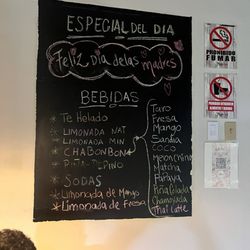 ESPECIAL DEL DIA
Feliz dia de las madres
BEBIDAS
* Te Helado
* LIMONADA NAT
* LIMONADA MIN
* CHABONBON
* SODAS
* Limonada de Mango
* Limonada de Fresa
Taro
Fresa
Mango
Sandia
COCO
Matcha
Papaya
Piña Colada
Chamoyada
Thai Latte
PROHIBIDO
FUMAR